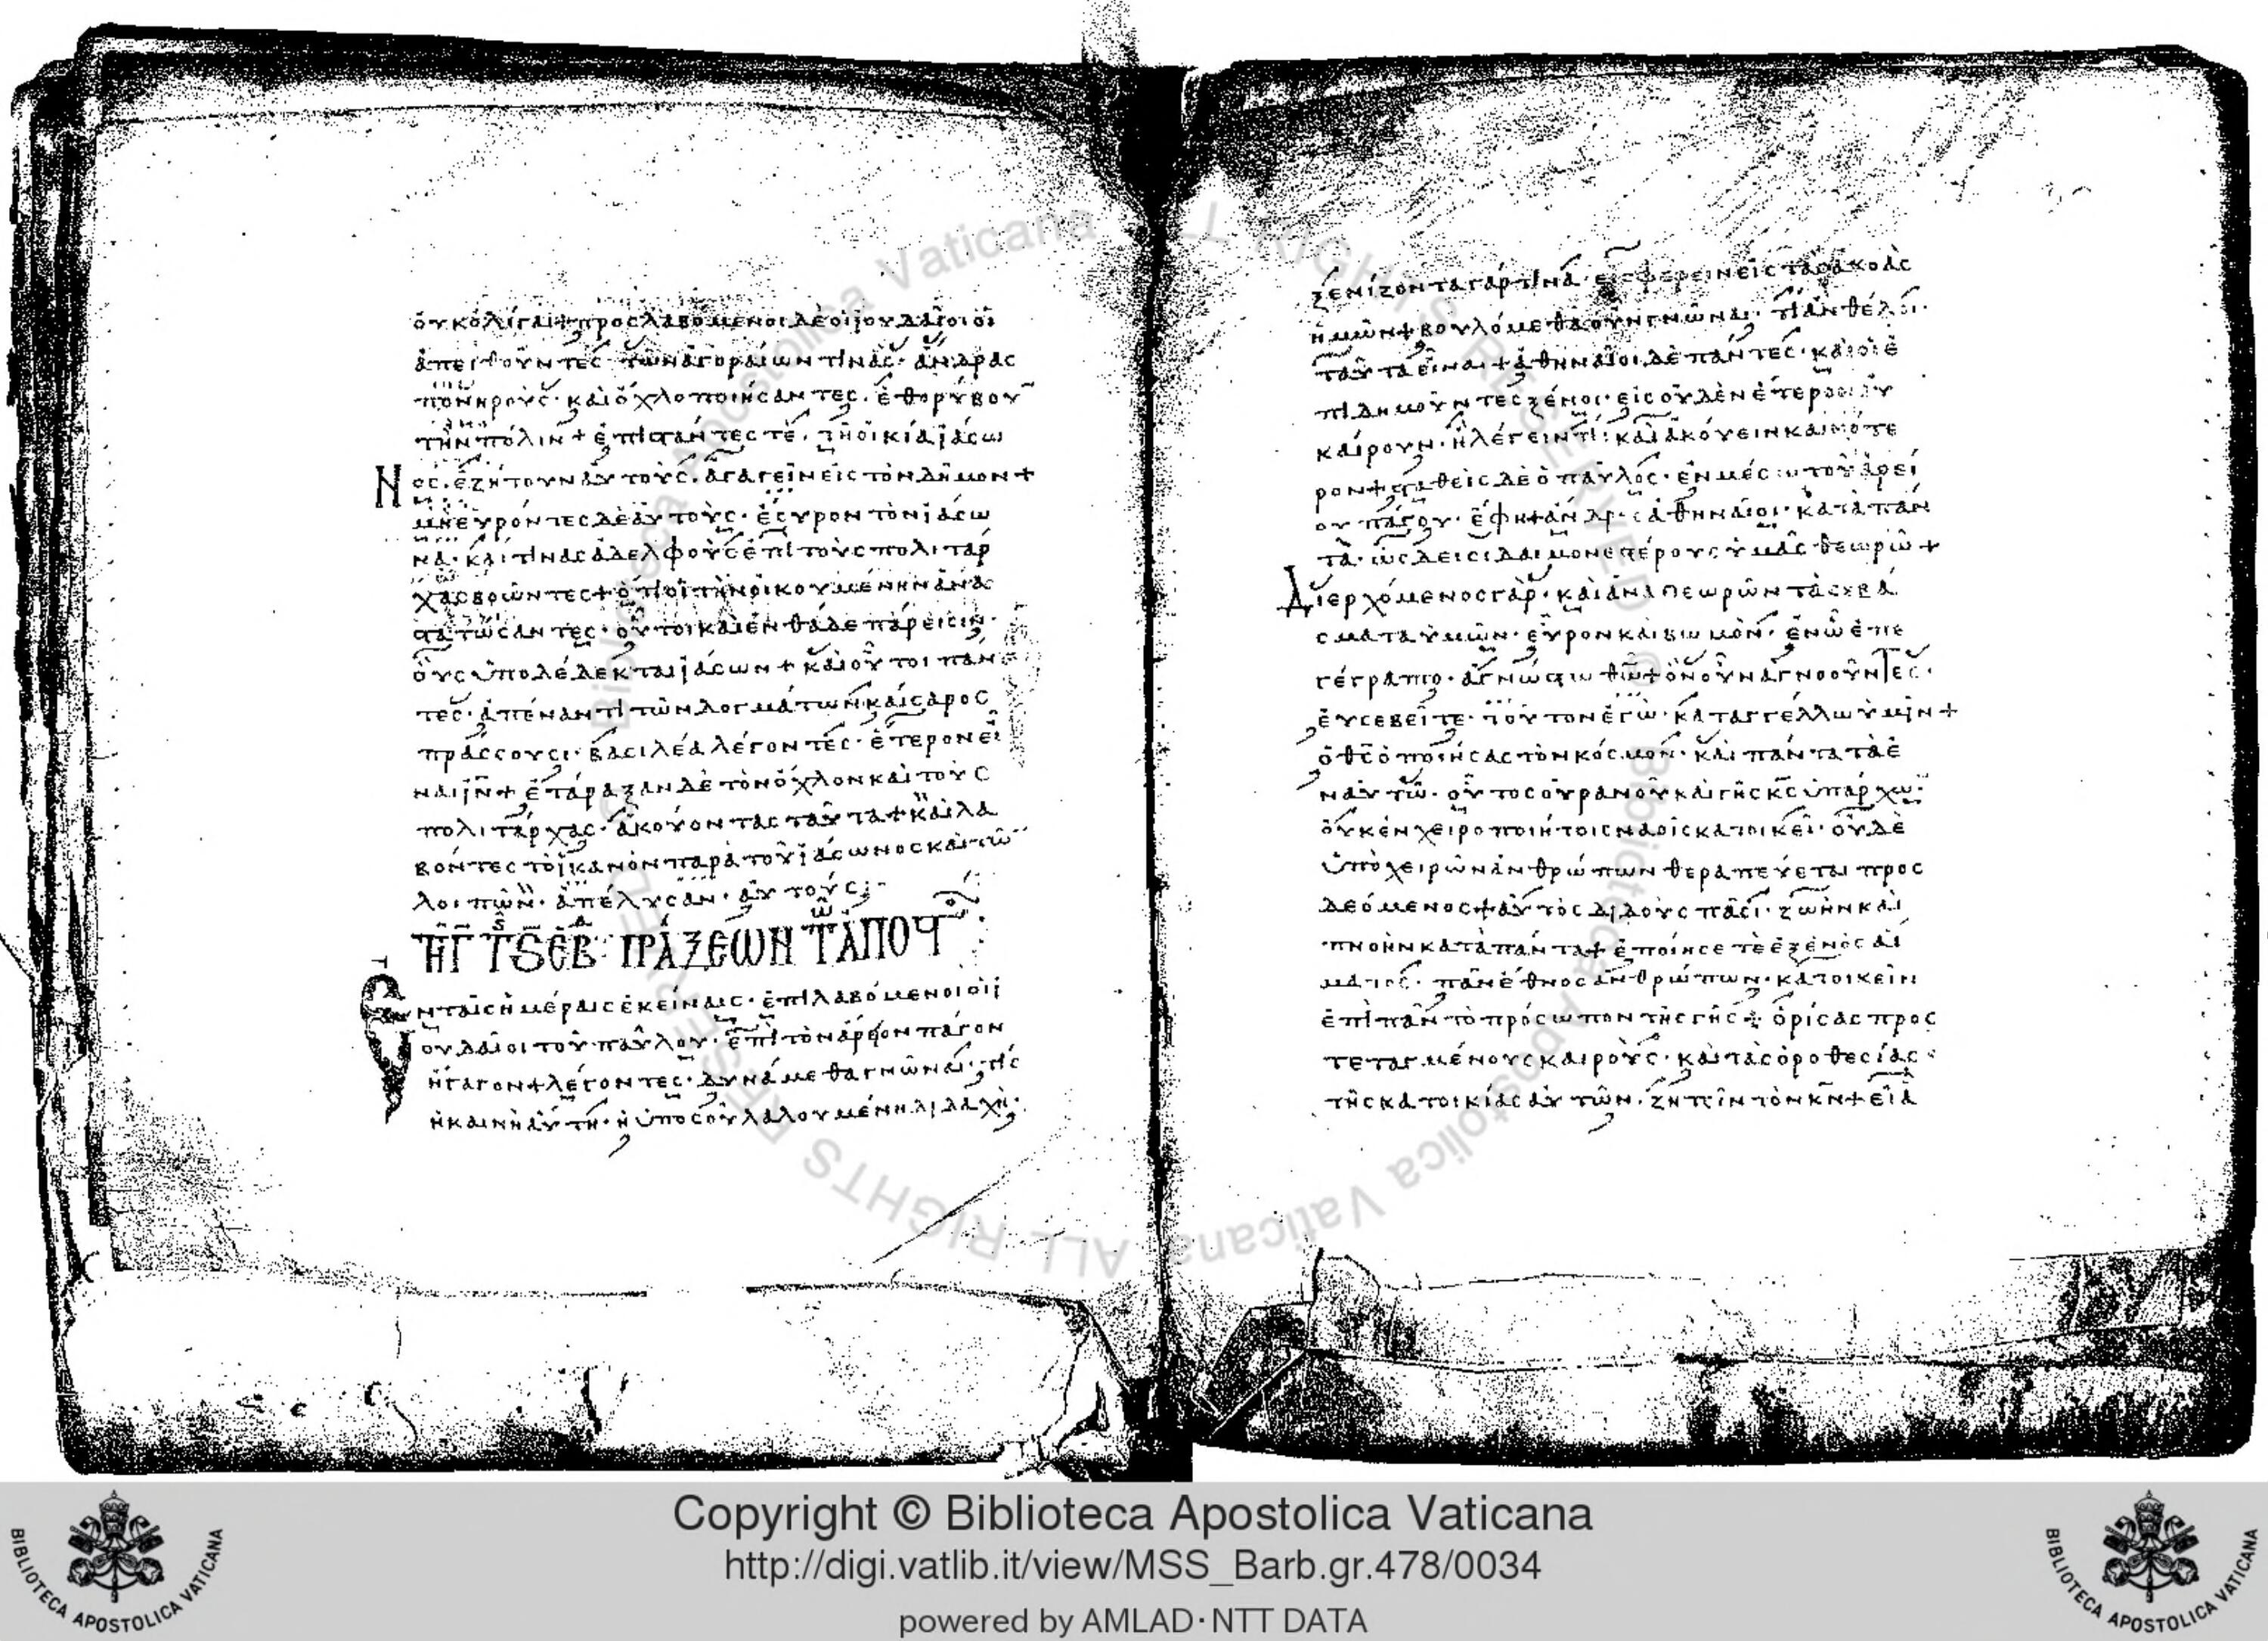 οὐκ ὀλίγαι + προσλαβόμενοι δὲ οἱ ἰουδαῖοι οἱ
ἀπειθοῦντες τῶν ἀγοραίων τινὰς· ἄνδρας
πονηρούς· καὶ ὀχλοποιήσαντες· ἐθορύβουν
τὴν πόλιν + ἐπιστάντες τὲ τῆ οἰκία ἰάσω
νος· ἐζήτουν αὐτοὺς· ἀγαγεῖν εἰς τὸν δῆμον +
μὴ εὑρόντες δὲ αὐτοὺς· ἔσυρον τὸν ἰάσω
να· καὶ τινὰς ἀδελφοὺς ἐπὶ τοὺς πολιτάρ
χας βοῶντες + ὅτι οἱ τὴν οἰκουμένην ἀνα
στατώσαντες· οὗτοι καὶ ἐνθάδε πάρεισιν·
οὓς ὑποδέδεκται ἰάσων + καὶ οὗτοι πάν
τες· ἀπέναντι τῶν δογμάτων καίσαρος
πράσσουσι· βασιλέα λέγοντες· ἕτερον εἶ
ναι ἰν + ἐτάραξαν δὲ τὸν ὄχλον καὶ τοὺς
πολιτάρχας· ἀκούοντας ταῦτα + καὶ λα
βόντες τὸ ἱκανὸν παρὰ τοῦ ἰάσωνος καὶ τῶν
λοιπῶν· ἀπέλυσαν· αὐτούς·
ΤΗ Γ ΤΣ ΕΒΔ ΠΡΑΞΕΩΝ ΤΩΝ ΑΠΟ
Ἐν ταῖς ἡμέραις ἐκείναις· ἐπιλαβόμενοι οἱ ἰ
ουδαῖοι τοῦ παύλου· ἐπὶ τὸν ἄρειον πάγον
ἤγαγον + λέγοντες· δυνάμεθα γνῶναι· τίς
ἡ καινὴ αὕτη· ἡ ὑπὸ σοῦ λαλουμένη διδαχή·
ξενίζοντα γάρ τινα· εἰσφέρειν εἰς τὰς ἀκοὰς
ἡμῶν + βουλόμεθα οὖν γνῶναι· τί ἂν θέλοι·
ταῦτα εἶναι + ἀθηναῖοι δὲ πάντες· καὶ οἱ ἐ
πιδημοῦντες ξένοι· εἰς οὐδὲν ἕτερον εὐ
καίρουν· ἢ λέγειν τί· καὶ ἀκούειν καινότε
ρον + σταθεὶς δὲ ὁ παῦλος· ἐν μέσω τοῦ ἀρεί
ου πάγου· ἔφη + ἄνδρες ἀθηναῖοι· κατὰ πάν
τα· ὡς δεισιδαιμονεστέρους ὑμᾶς θεωρῶ +
Διερχόμενος γὰρ· καὶ ἀναθεωρῶν τὰ σεβά
σματα ὑμῶν· εὗρον καὶ βωμὸν· ἐν ῶ ἐπε
γέγραπτο· ἀγνώστω θεῶ + ὃν οὖν ἀγνοοῦντες·
εὐσεβεῖτε· τοῦτον ἐγὼ· καταγγέλλω ὑμῖν +
ὁ θς ὁ ποιήσας τὸν κόσμον· καὶ πάντα τὰ ἐ
ν αὐτῶ· οὗτος οὐρανοῦ καὶ γῆς κς ὑπάρχων·
οὐκ ἐν χειροποιήτοις ναοῖς κατοικεῖ· οὐδὲ
ὑπὸ χειρῶν ἀνθρώπων θεραπεύεται προς
δεόμενος + αὐτὸς διδοὺς πᾶσι· ζωὴν καὶ
πνοὴν κατὰ πάντα + ἐποίησε τὲ ἐξ ἑνὸς αἵ
ματος· πᾶν ἔθνος ἀνθρώπων· κατοικεῖν
ἐπὶ πᾶν τὸ πρόσωπον τῆς γῆς + ὁρίσας προς
τεταγμένους καιροὺς· καὶ τὰς ὁροθεσίας
τῆς κατοικίας αὐτῶν· ζητεῖν τὸν κν + εἰ ἄ
Copyright © Biblioteca Apostolica Vaticana
http://digi.vatlib.it/view/MSS_Barb.gr.478/0034
powered by AMLAD·NTT DATA
BIBLIOTECA APOSTOLICA VATICANA
BIBLIOTECA APOSTOLICA VATICANA